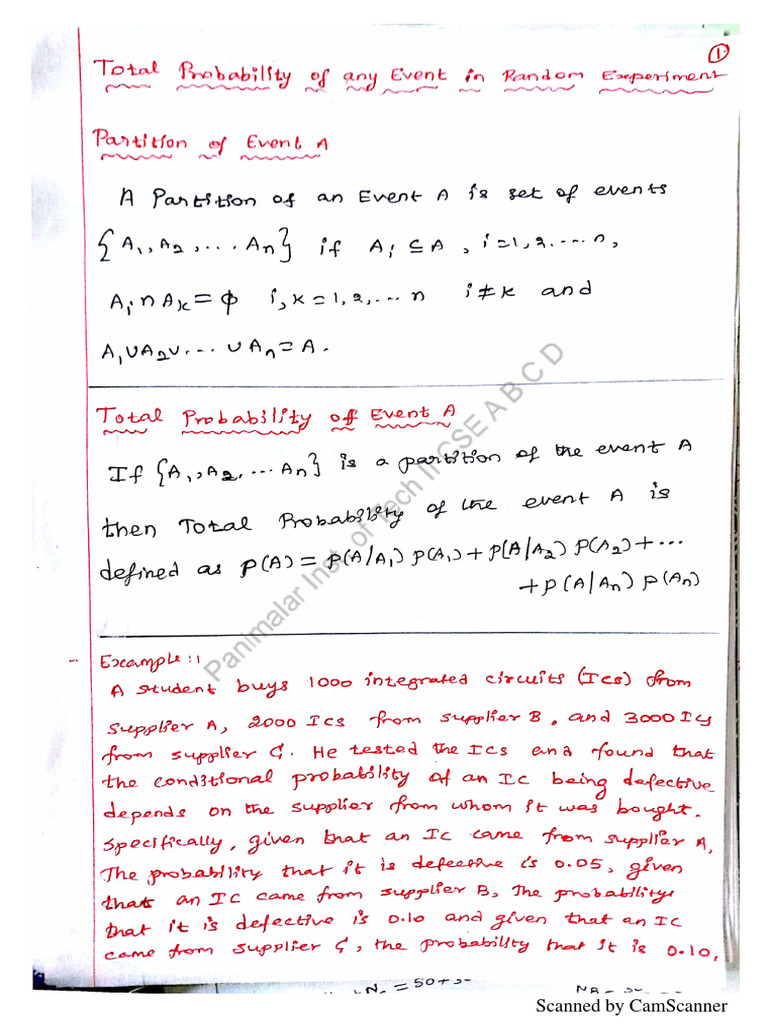 1
Total Probability of any Event in Random Experiment
Partition of Event A
A Partition of an Event A is set of events
{A₁, A₂, ... Aₙ} if Aᵢ ⊆ A, i=1,2.....n,
Aᵢ ∩ Aₖ = ϕ i,k = 1,2,... n i≠k and
A₁∪A₂∪.... ∪Aₙ=A.
Total Probability of Event A
If {A₁, A₂, ... Aₙ} is a partition of the event A
then Total Probability of the event A is
defined as P(A) = P(A/A₁) P(A₁) + P(A/A₂) P(A₂) + ...
+ P(A/Aₙ) P(Aₙ)
Panimalar Inst. of Tech II CSE A B C D
Example:1
A student buys 1000 integrated circuits (ICs) from
supplier A, 2000 ICs from supplier B, and 3000 ICs
from supplier C. He tested the ICs and found that
the conditional probability of an IC being defective
depends on the supplier from whom it was bought.
Specifically, given that an IC came from supplier A,
The probability that it is defective is 0.05, given
that an IC came from supplier B, The probability
that it is defective is 0.10 and given that an IC
came from supplier C, the probability that it is 0.10,
= 50+
Scanned by CamScanner